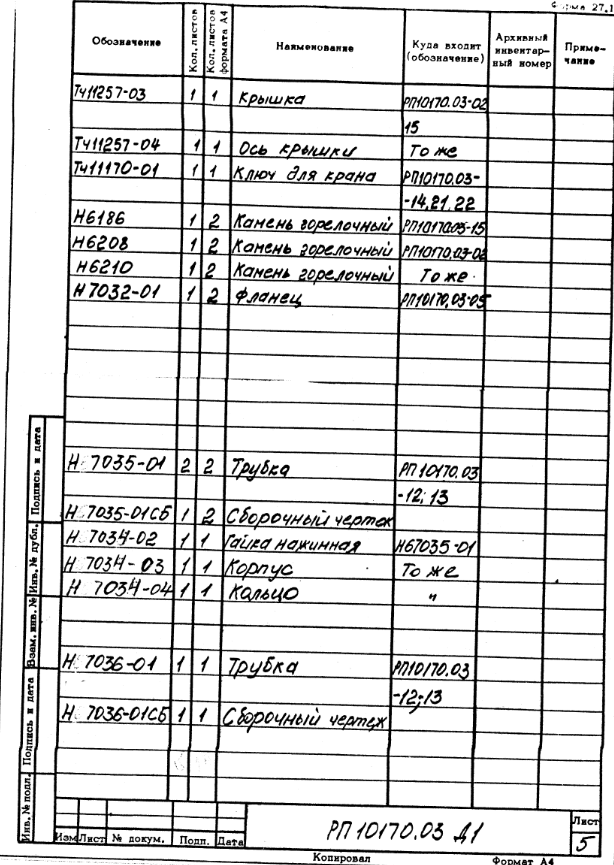 Форма 27.1
Обозначение Кол. листов Кол. листов формата А4 Наименование Куда входит (обозначение) Архивный инвентарный номер Приме-чание
ТЧ11257-03 1 1 Крышка РП10170.03-02
15
ТЧ11257-04 1 1 Ось крышки То же
ТЧ11170-01 1 1 Ключ для крана РП10170.03-
-14,21,22
Н6186 1 2 Камень горелочный РП10170.03-15
Н6208 1 2 Камень горелочный РП10170.03-02
Н6210 1 2 Камень горелочный То же
Н7032-01 1 2 Фланец РП10170.03-05
Н 7035-01 2 2 Трубка РП10170.03
-12;13
Н 7035-01СБ 1 2 Сборочный чертеж
Н 7034-02 1 1 Гайка нажинная Н67035-01
Н 7034-03 1 1 Корпус То же
Н 7034-04 1 1 Кольцо "
Н 7036-01 1 1 Трубка РП10170.03
-12;13
Н 7036-01СБ 1 1 Сборочный чертеж
Инв. № подл. Подпись и дата Взам. инв. № Инв. № дубл. Подпись и дата
Изм Лист № докум. Подп. Дата
РП 10170.03 Д1
Лист
5
Копировал Формат А4